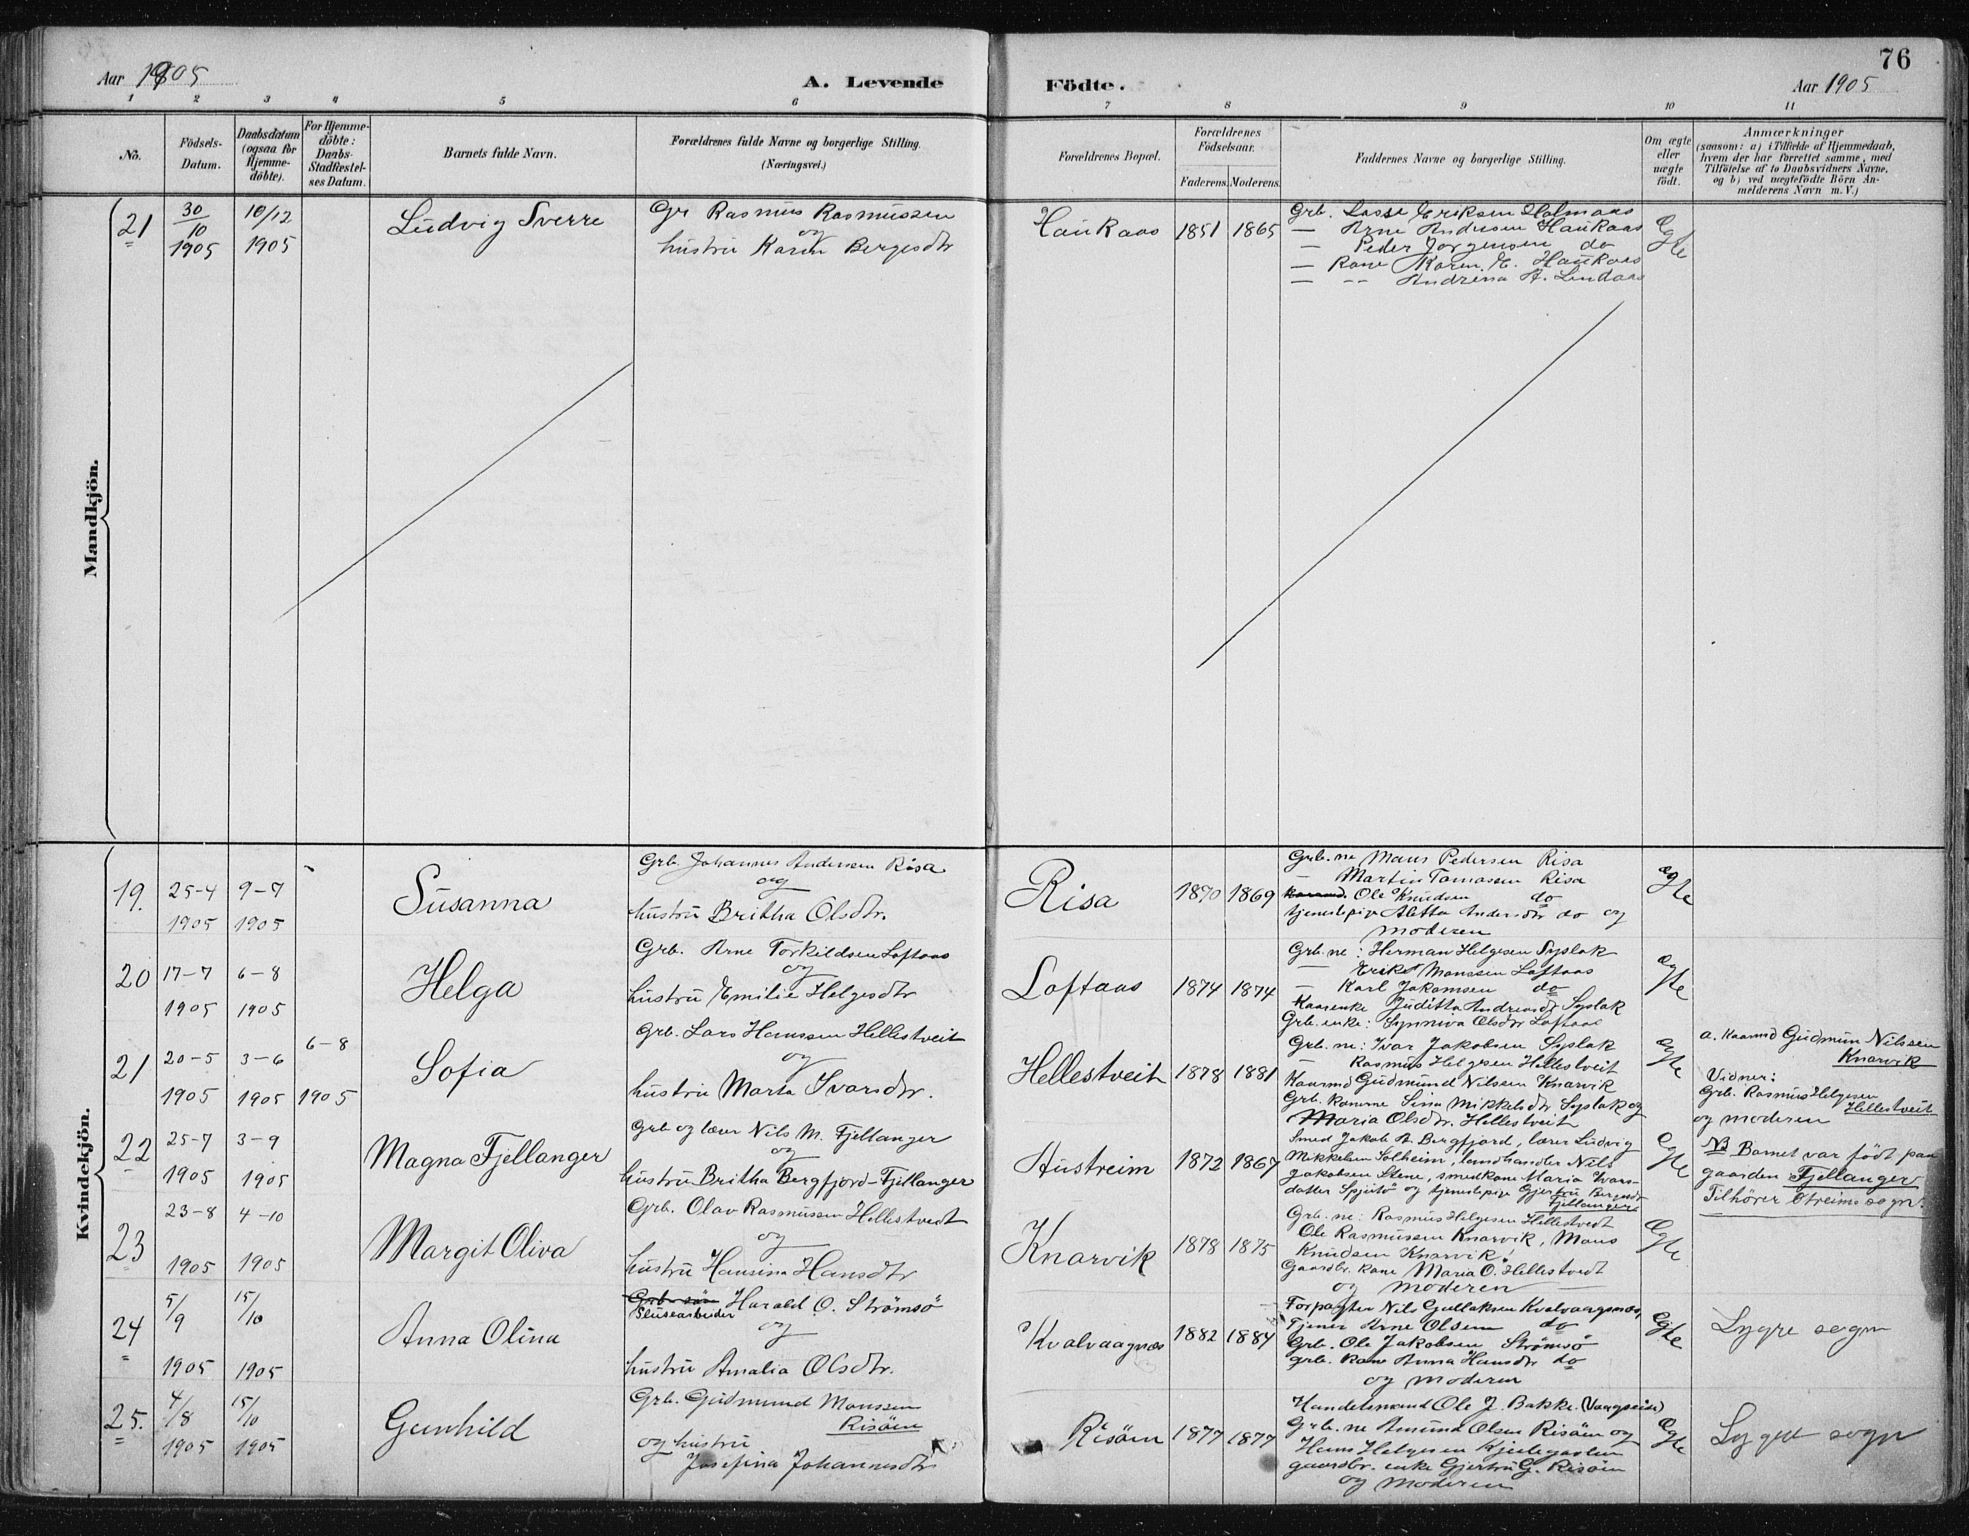 76
Aar 1905
A. Levende
Födte.
Aar 1905
1 2 3 4 5 6 7 8 9 10 11
No.
Födsels-
Datum.
Daabsdatum
(ogsaa for
Hjemme-
döbte).
For Hjemme-
döbte:
Daabs-
Stadfæstel-
ses Datum.
Barnets fulde Navn.
Forældrenes fulde Navne og borgerlige Stilling.
(Næringsvei.)
Forældrenes Bopæl.
Forældrenes
Födselsaar.
Faderens.
Moderens.
Faddernes Navne og borgerlige Stilling.
Om ægte
eller
uægte
födt.
Anmærkninger
(saasom: a) i Tilfælde af Hjemmedaab,
hvem der har forrettet samme, med
Tilföielse af to Daabsvidners Navne,
og b) ved uægtefödte Börn An-
melderens Navn m. V.)
Mandkjön.
21
30/10
1905
10/12
1905
Ludvig Sverre
Gr Rasmus Rasmussen
og
hustru Karen Bergesdtr
Haukaas
1851
1865
Grb. Lasse Eriksen Holmaas
— Arne Andersen Haukaas
— Peder Jorgensen do
— Kone Karen E. Haukaas
— -- Andrena A. Lindaas
Egte
Kvindekjön.
19.
25-4
1905
9-7
1905
Susanna
Grb. Johannes Andersen Risa
og
hustru Britha Olsdtr.
Risa
1870
1869
Grb.ne Mans Pedersen Risa
— Martin Tomasen Risa
Ole Knudsen do
tjenestepige Aletta Andersdtr do og
moderen
ægte
20
17-7
1905
6-8
1905
Helga
Grb. Arne Torkildsen Loftaas
og
hustru Emilie Helgesdtr
Loftaas
1874
1874
Grb.ne: Herman Helgesen Syslak
— Erik Monssen Loftaas
— Karl Jakobsen do
Kaarenke Juditta Andreasdtr Syslak
Grb. enke: Synneva Olsdtr Loftaas
ægte
21
20-5
1905
3-6
1905
6-8
1905
Sofia
Grb. Lars Hanssen Hellestveit
og
hustru Marta Ivarsdtr.
Hellestveit
1878
1881
Grb.ne: Ivar Jakobsen Syslak
— Rasmus Helgesen Hellestveit
Kaarmd Gudmund Nilsen Knarvik
Grb. konerne Sina Mikkelsdtr. Syslak og
Maria Olsdtr. Hellestveit
ægte
a. Kaarmd Gudmun Nilssen
Knarvik
Vidner:
Grb. Rasmus Helgesen
Hellestveit
og moderen
22
25-7
1905
3-9
1905
Magna Fjellanger
Grb og lærer Nils M. Fjellanger
og
hustru Britha Bergfjord-Fjellanger
Hustreim
1872
1867
Smed Jakob A. Bergfjord, lærer Ludvig
Mikkelsen Solheim, landhandler Nils
Jakobsen Stene, smedkone Maria Ivars-
datter Spjutö og tjenestepige Gjertru Bergesdtr
Fjellanger
Egte
NB Barnet var født paa
gaarden Fjellanger
Tilhører Etreims sogn.
23
23-8
1905
4-10
1905
Margit Oliva
Grb. Olav Rasmussen Hellestvedt
og
hustru Hansina Hansdtr
Knarvik
1878
1875
Grb.ne: Rasmus Helgesen Hellestvedt
Ole Rasmussen Knarvik, Mons
Knudsen Knarvik
Gaardbr. kone Maria O. Hellestvedt
og moderen
Egte
24
5/9
1905
15/10
1905
Anna Olina
Grb. sön Harald O. Strömsö
Slusearbeider
og
hustru Amalia Olsdtr.
Kvalvaagnæs
1882
1884
Forpagter Nils Gullaksen Kvalvaagnæs,
Tjener Arne Olsen do
Grb. Ole Jakobsen Strömsö
grb. kone Anna Hansdtr do
og moderen
Egte
Lygre sogn
25.
4/8
1905
15/10
1905
Gunhild
Grb. Gudmund Monssen
Risöen
og hustru
Josefina Johannesdtr
Risöen
1877
1877
Handelsmand Ole J. Bakke
Grb.ne Amund Olsen Risöen og
Hans Helgesen
gaardbr. enke Gjertru G. Risöen
og moderen
Egte
Lygre sogn